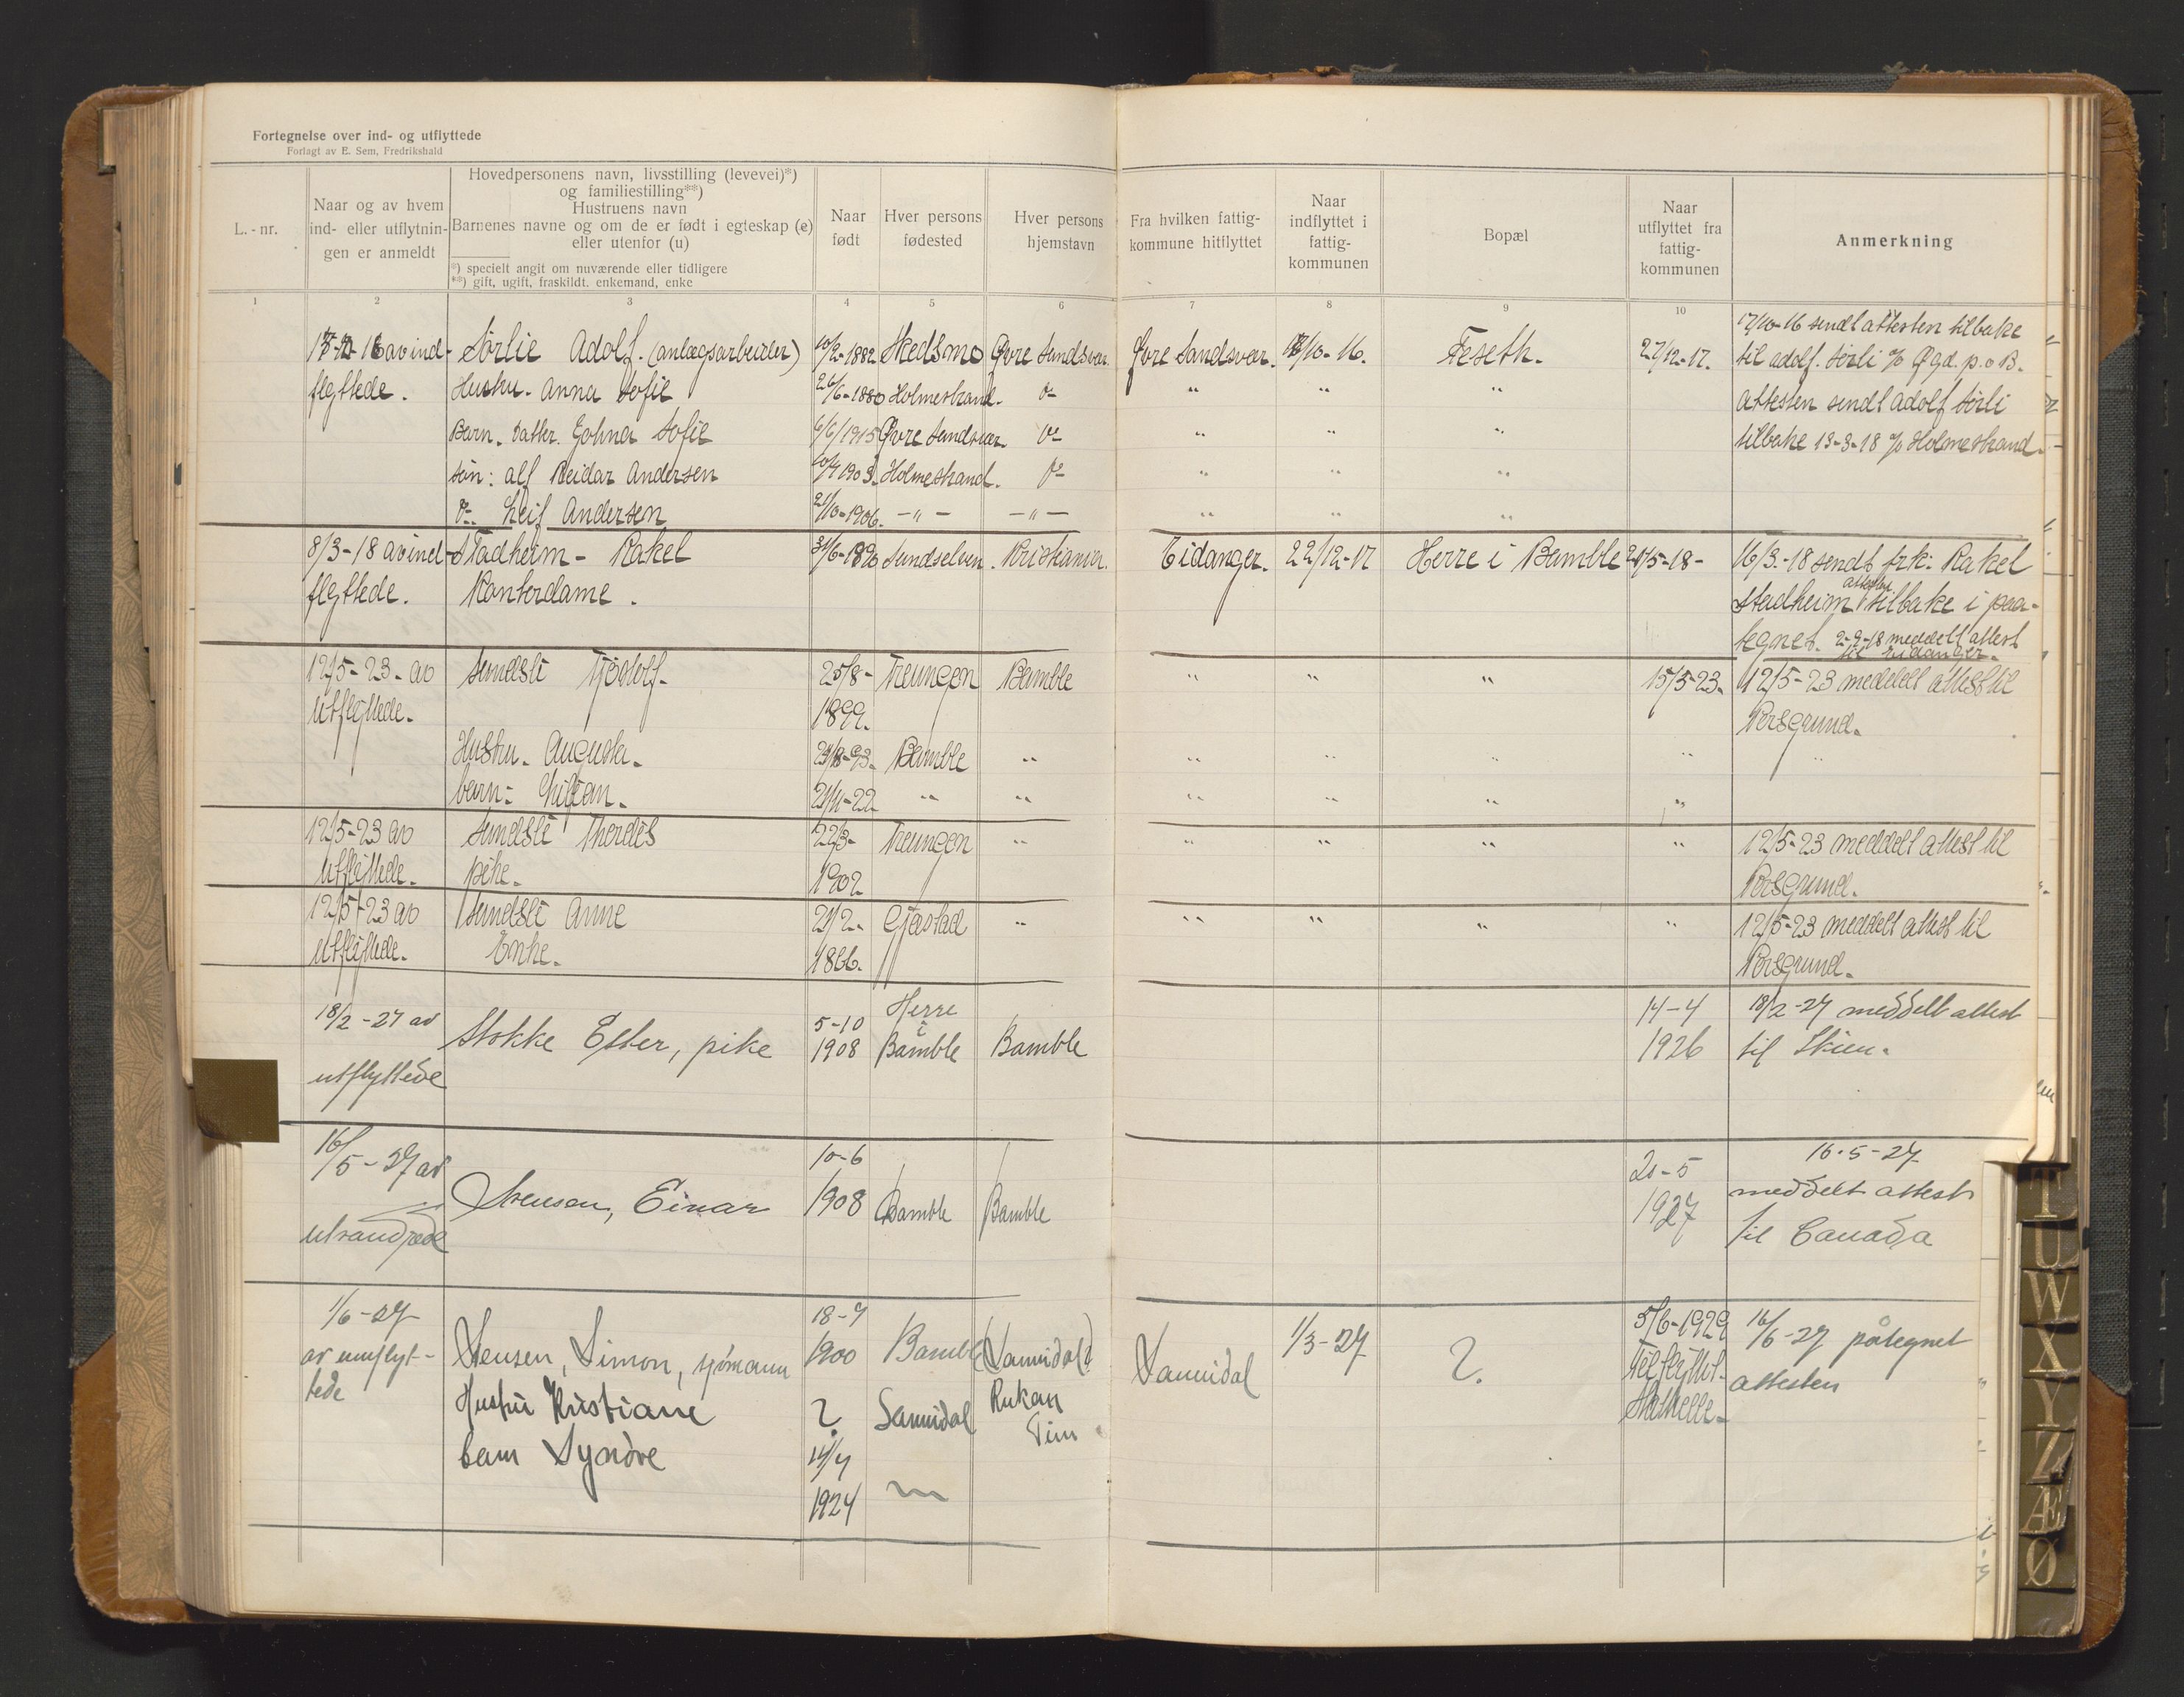 Fortegnelse over ind- og utflyttede
Forlagt av E. Sem, Fredrikshald
L.-nr.
Naar og av hvem
ind- eller utflytnin-
gen er anmeldt
Hovedpersonens navn, livsstilling (levevei)*)
og familiestilling**)
Hustruens navn
Barnenes navne og om de er født i egteskap (e)
eller utenfor (u)
*) specielt angit om nuværende eller tidligere
**) gift, ugift, fraskildt. enkemand, enke
Naar
født
Hver persons
fødested
Hver persons
hjemstavn
Fra hvilken fattig-
kommune hitflyttet
Naar
indflyttet i
fattig-
kommunen
Bopæl
Naar
utflyttet fra
fattig-
kommunen
Anmerkning
1 2 3 4 5 6 7 8 9 10
16 av ind- Sørlie Adolf. (anlægsarbeider) 10/2-1882 Skedsmo Øvre Sandsvær. Øvre Sandsvær. /10-16. Feseth. 27/12-17. 17/10-16 sendt attesten tilbake
til Adolf. Sørli
flyttede. Hustru. Anna Sofie 26/6-1880 Holmestrand. do " " " attesten sendt Adolf Sørli
Barn. Datter. Sofie 6/6/1915 Øvre Sandsvær. do " " " tilbake 13-3-18 % Holmestrand.
søn: Alf Reidar Andersen 10/4 1903. Holmestrand. do " " "
do. Leif Andersen 21/10-1906. -"- -"- " " "
8/3-18 av ind- Stadheim- Rakel 31/6-1890 Sundselven. Kristiania. Eidanger. 22/12-17 Herre i Bamble 21/5-18- 16/3-18 sendt frk. Rakel
flyttede. Kontordame. Stadheim attesten tilbake i paa-
tegnet. 2-9-18 meddelt attest
til Eidanger.
12/5-23. av Sundsli 25/8- Treungen Bamble " " " 15/5-23. 12/5-23 meddelt attest til
utflyttede. 1899. Porsgrund.
Hustru. Augusta. 21/8-93. Bamble " " " " " "
barn: 21/11-22 " " " " " "
12/5-23 av Sundsli Thordis 22/3- Treungen " " " " " 12/5-23 meddelt attest til
utflyttede. pike. 1902. Porsgrund.
12/5-23 av Sundsli Anne 21/2. Gjerstad " " " " " 12/5-23 meddelt attest til
utflyttede. Enke. 1866. Porsgrund.
18/2-27 av Stokke Ester, pike 5-10 Herre i 14-4 18/2-27 meddelt attest
1908 Bamble Bamble 1926 til Skien.
utflyttede
16/5-27 av 10-6 20-5 16.5-27
Stensen, Einar 1908 Bamble Bamble 1927 meddelt attest
utvandrede til Canada
1/6-27 18-7 5/6-1929 16/6-27 påtegnet
av innflyt- Stensen, Simon, sjømann 1900 Bamble (Sannidal) Sannidal 1/3-27 ? attesten
tede Hustru Kristiane ? Sannidal Rukan Tinn Tilflyttet
Stathelle.
barn Synöve 14/4
1924
T
U
W
X
Y
Z
Æ
Ø